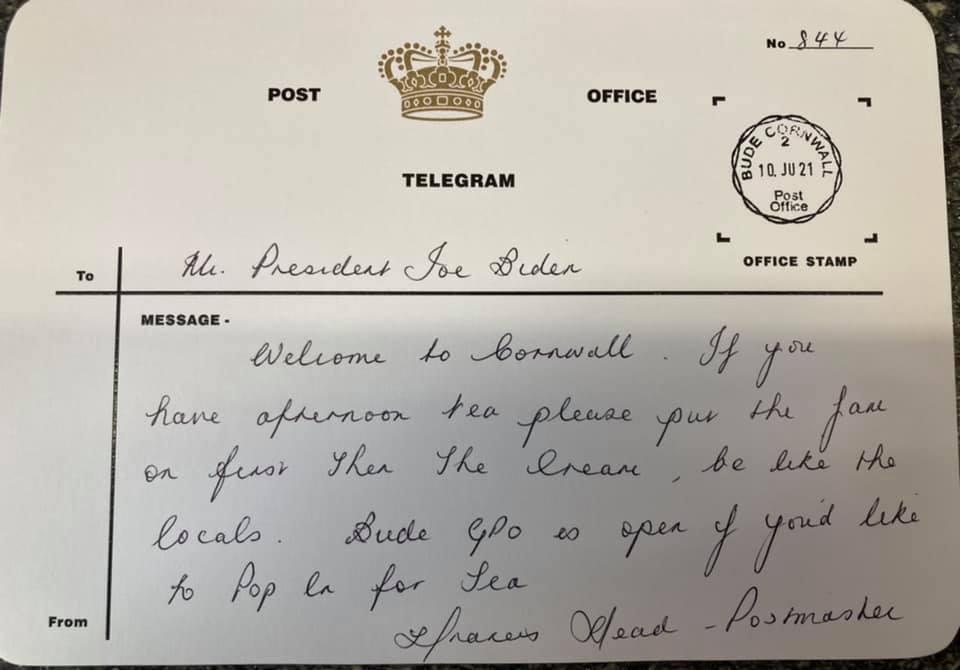 No 844
POST OFFICE
BUDE CORNWALL
2
10. JU 21
Post
Office
TELEGRAM
OFFICE STAMP
To Mr. President Joe Biden
MESSAGE -
Welcome to Cornwall. If you
have afternoon tea please put the Jam
on first then the Cream, be like the
locals. Bude GPO is open if you'd like
to Pop in for Tea
From Francis Head - Postmaster